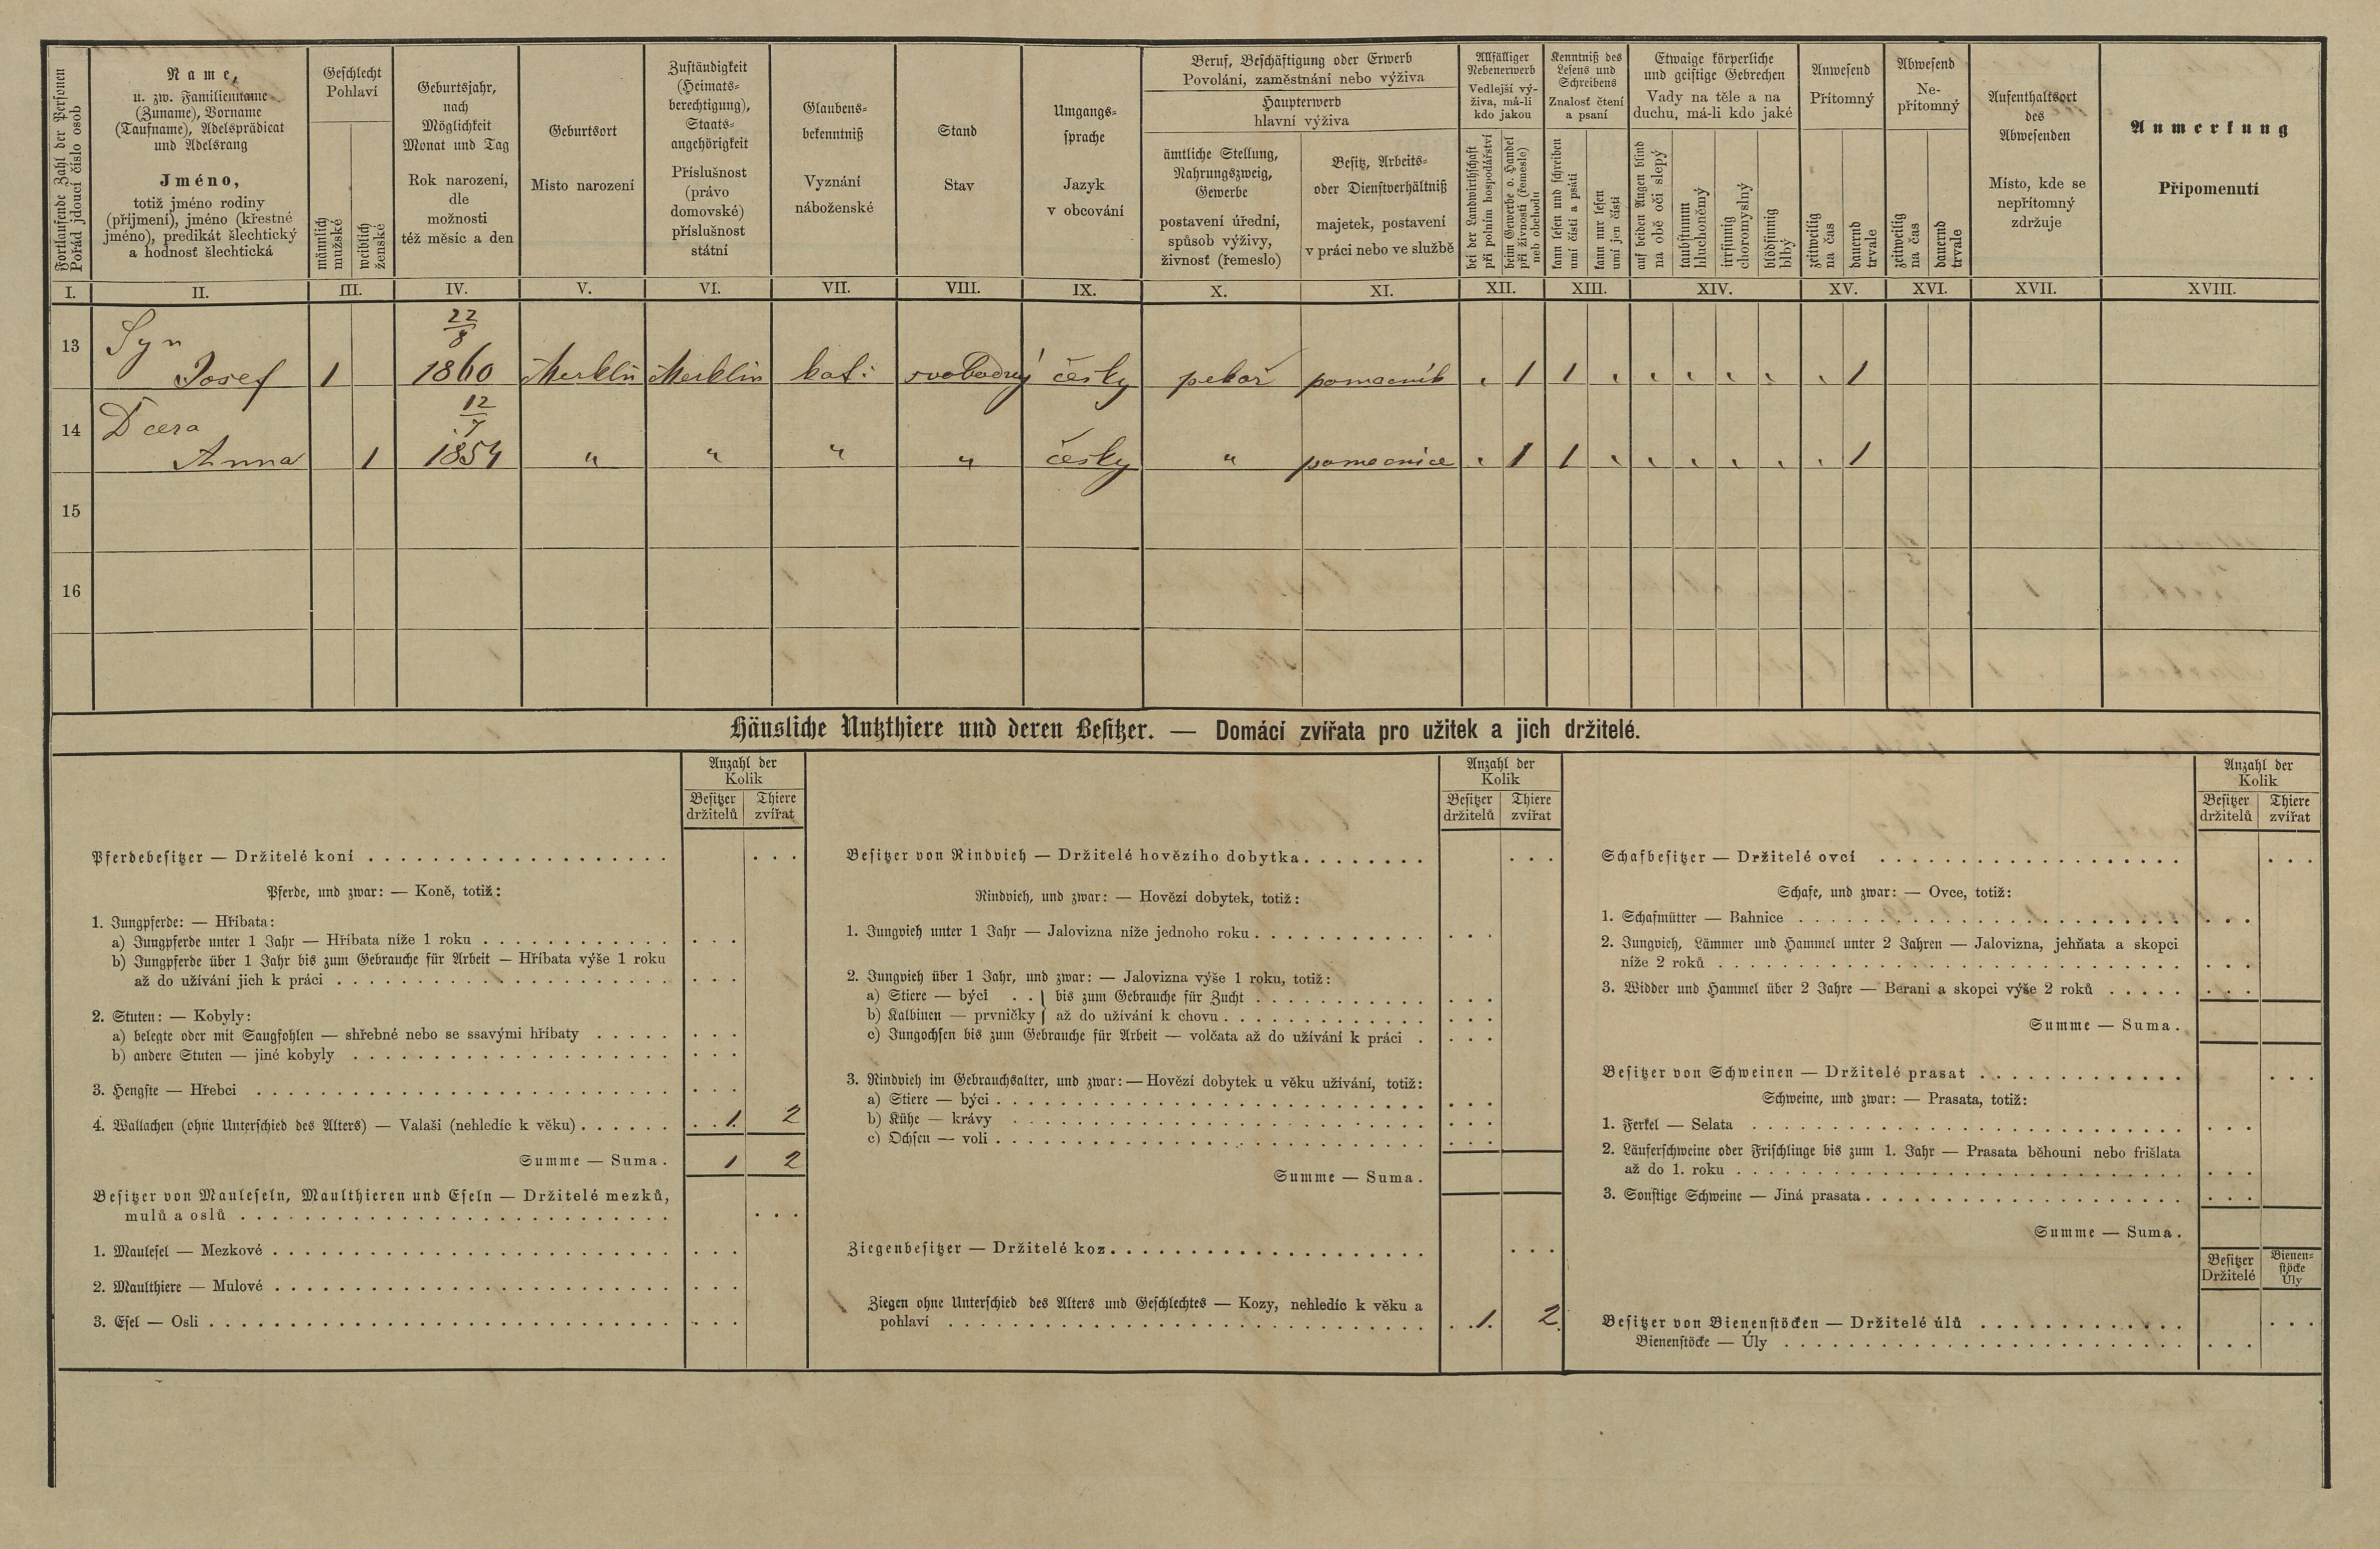 Fortlaufende Zahl der Personen
Pořád jdoucí číslo osob
Name,
u. zw. Familienname
(Zuname), Vorname
(Taufname), Adelsprädicat
und Adelsrang
Jméno,
totiž jméno rodiny
(příjmení), jméno (křestné
jméno), predikát šlechtický
a hodnosť šlechtická
Geschlecht
Pohlaví
männlich
mužské
weiblich
ženské
Geburtsjahr,
nach
Möglichkeit
Monat und Tag
Rok narození,
dle
možnosti
též měsíc a den
Geburtsort
Místo narození
Zuständigkeit
(Heimats-
berechtigung),
Staats-
angehörigkeit
Příslušnost
(právo
domovské)
příslušnost
státní
Glaubens-
bekenntniß
Vyznání
náboženské
Stand
Stav
Umgangs-
sprache
Jazyk
v obcování
Beruf, Beschäftigung oder Erwerb
Povolání, zaměstnání nebo výživa
Haupterwerb
hlavní výživa
ämtliche Stellung,
Nahrungszweig,
Gewerbe
postavení úřední,
spůsob výživy,
živnosť (řemeslo)
Besitz, Arbeits-
oder Dienstverhältniß
majetek, postavení
v práci nebo ve službě
Allfälliger
Nebenerwerb
Vedlejší vý-
živa, má-li
kdo jakou
bei der Landwirthschaft
při polním hospodářství
beim Gewerbe o. Handel
při živnosti (řemesle)
neb obchodu
Kenntniß des
Lesens und
Schreibens
Znalosť čtení
a psaní
kann lesen und schreiben
umí čísti a psáti
kann nur lesen
umí jen čísti
Etwaige körperliche
und geistige Gebrechen
Vady na těle a na
duchu, má-li kdo jaké
auf beiden Augen blind
na obě oči slepý
taubstumm
hluchoněmý
irrsinnig
choromyslný
blödsinnig
blbý
Anwesend
Přítomný
zeitweilig
na čas
dauernd
trvale
Abwesend
Ne-
přítomný
zeitweilig
na čas
dauernd
trvale
Aufenthaltsort
des
Abwesenden
Místo, kde se
nepřítomný
zdržuje
Anmerkung
Připomenutí
I. II. III. IV. V. VI. VII. VIII. IX. X. XI. XII. XIII. XIV. XV. XVI. XVII. XVIII.
22
13 Syn 8
Josef 1 1860 Merklín Merklín kat: svobodný česky pekař pomocník „ 1 1 „ „ „ „ „ „ 1
12
14 Dcera 7
Anna 1 1854 " " " " česky " pomocnice „ 1 1 „ „ „ „ „ „ 1
15
16
Häusliche Nutzthiere und deren Besitzer. — Domácí zvířata pro užitek a jich držitelé.
Anzahl der
Kolik
Besitzer Thiere
držitelů zvířat
Pferdebesitzer — Držitelé koní
Pferde, und zwar: — Koně, totiž:
1. Jungpferde: — Hříbata:
a) Jungpferde unter 1 Jahr — Hříbata níže 1 roku
b) Jungpferde über 1 Jahr bis zum Gebrauche für Arbeit — Hříbata výše 1 roku
až do užívání jich k práci
2. Stuten: — Kobyly:
a) belegte oder mit Saugfohlen — shřebné nebo se ssavými hříbaty
b) andere Stuten — jiné kobyly
3. Hengste — Hřebci
4. Wallachen (ohne Unterschied des Alters) — Valaši (nehledíc k věku) 1 2
Summe — Suma. 1 2
Besitzer von Mauleseln, Maulthieren und Eseln — Držitelé mezků,
mulů a oslů
1. Maulesel — Mezkové
2. Maulthiere — Mulové
3. Esel — Osli
Anzahl der
Kolik
Besitzer Thiere
držitelů zvířat
Besitzer von Rindvieh — Držitelé hovězího dobytka
Rindvieh, und zwar: — Hovězí dobytek, totiž:
1. Jungvieh unter 1 Jahr — Jalovizna níže jednoho roku
2. Jungvieh über 1 Jahr, und zwar: — Jalovizna výše 1 roku, totiž:
a) Stiere — býci . . } bis zum Gebrauche für Zucht
b) Kalbinen — prvničky } až do užívání k chovu
c) Jungochsen bis zum Gebrauche für Arbeit — volčata až do užívání k práci
3. Rindvieh im Gebrauchsalter, und zwar: — Hovězí dobytek u věku užívání, totiž:
a) Stiere — býci
b) Kühe — krávy
c) Ochsen — voli
Summe — Suma.
Ziegenbesitzer — Držitelé koz
Ziegen ohne Unterschied des Alters und Geschlechtes — Kozy, nehledíc k věku a
pohlaví 1. 2.
Anzahl der
Kolik
Besitzer Thiere
držitelů zvířat
Schafbesitzer — Držitelé ovcí
Schafe, und zwar: — Ovce, totiž:
1. Schafmütter — Bahnice
2. Jungvieh, Lämmer und Hammel unter 2 Jahren — Jalovizna, jehňata a skopci
níže 2 roků
3. Widder und Hammel über 2 Jahre — Berani a skopci výše 2 roků
Summe — Suma.
Besitzer von Schweinen — Držitelé prasat
Schweine, und zwar: — Prasata, totiž:
1. Ferkel — Selata
2. Läuferschweine oder Frischlinge bis zum 1. Jahr — Prasata běhouni nebo frišlata
až do 1. roku
3. Sonstige Schweine — Jiná prasata
Summe — Suma.
Besitzer Bienen-
Držitelé stöcke
Úly
Besitzer von Bienenstöcken — Držitelé úlů
Bienenstöcke — Úly